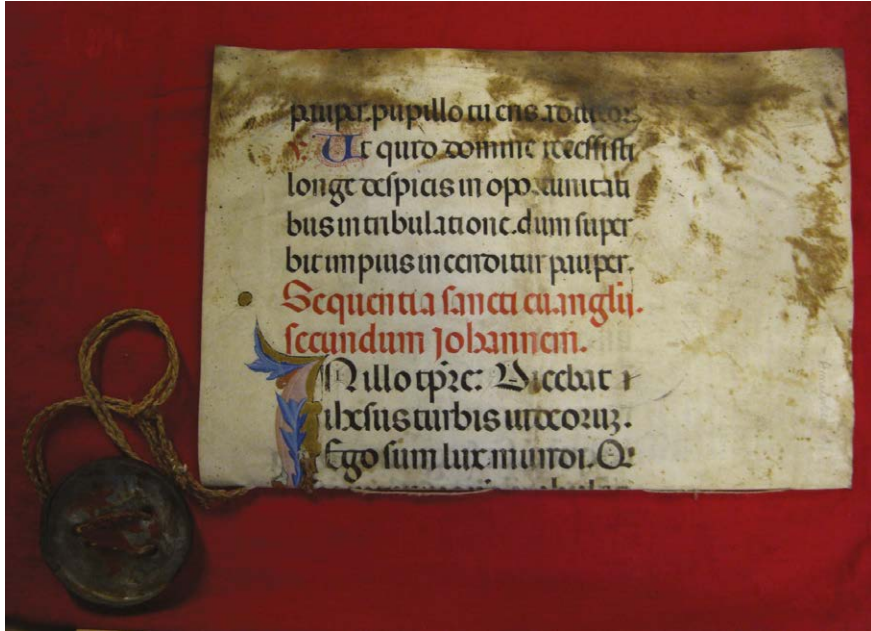 pauper. pupillo tu eris adiutor
v. Ut quid domine recessisti
longe despicis in oportunitati
bus in tribulatione. dum super
bit impius incenditur pauper.
Sequentia sancti euanglii.
secundum Johannem.
IN illo tp̄re: Dicebat
ihesus turbis iudeoruz.
Ego sum lux mundi. Q